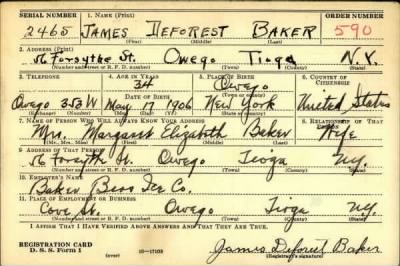 SERIAL NUMBER 1. NAME (Print) ORDER NUMBER
2465 JAMES DEFOREST BAKER 590
(First) (Middle) (Last)
2. ADDRESS (Print)
56 Forsythe St. Owego Tioga N.Y.
(Number and street or R. F. D. number) (Town) (County) (State)
3. TELEPHONE 4. AGE IN YEARS 5. PLACE OF BIRTH 6. COUNTRY OF CITIZENSHIP
34 Owego
DATE OF BIRTH (Town or county)
Owego 353W May 17 1906 New York United States
(Exchange) (Number) (Mo.) (Day) (Yr.) (State or country)
7. NAME OF PERSON WHO WILL ALWAYS KNOW YOUR ADDRESS 8. RELATIONSHIP OF THAT PERSON
Mrs. Margaret Elizabeth Baker Wife
(Mr., Mrs., Miss) (First) (Middle) (Last)
9. ADDRESS OF THAT PERSON
56 Forsythe St. Owego Tioga N.Y.
(Number and street or R. F. D. number) (Town) (County) (State)
10. EMPLOYER'S NAME
Baker Bros Ice Co.
11. PLACE OF EMPLOYMENT OR BUSINESS
Cove St. Owego Tioga N.Y.
(Number and street or R. F. D. number) (Town) (County) (State)
I AFFIRM THAT I HAVE VERIFIED ABOVE ANSWERS AND THAT THEY ARE TRUE.
REGISTRATION CARD
D. S. S. Form 1 (over) James Deforest Baker
(Registrant's signature)